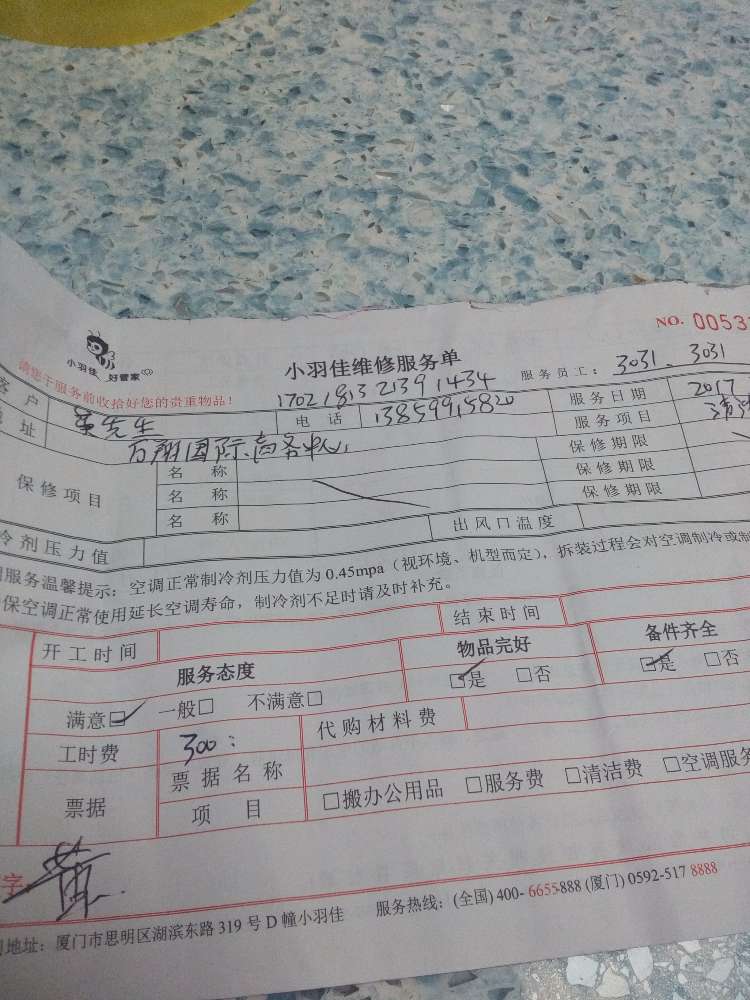 NO. 0053
小羽佳 好管家
小羽佳维修服务单
服务员工：3031 . 3031
请您于服务前收拾好您的贵重物品！
17021813 21391434
客户 先生 电话 13859915820 服务日期 2017
地址 万翔国际商务中心 服务项目 清洗
保修项目 名称 保修期限
名称 保修期限
名称 保修期限
冷剂压力值 出风口温度
服务温馨提示：空调正常制冷剂压力值为 0.45mpa（视环境、机型而定），拆装过程会对空调制冷或制
保空调正常使用延长空调寿命，制冷剂不足时请及时补充。
开工时间 结束时间
服务态度 物品完好 备件齐全
满意☑ 一般□ 不满意□ ☑是 □否 ☑是 □否
工时费 300： 代购材料费
票据 票据名称
项目 □搬办公用品 □服务费 □清洁费 □空调服务
字 黄
地址：厦门市思明区湖滨东路 319 号 D 幢小羽佳 服务热线：(全国) 400-6655-888 (厦门) 0592-517 8888